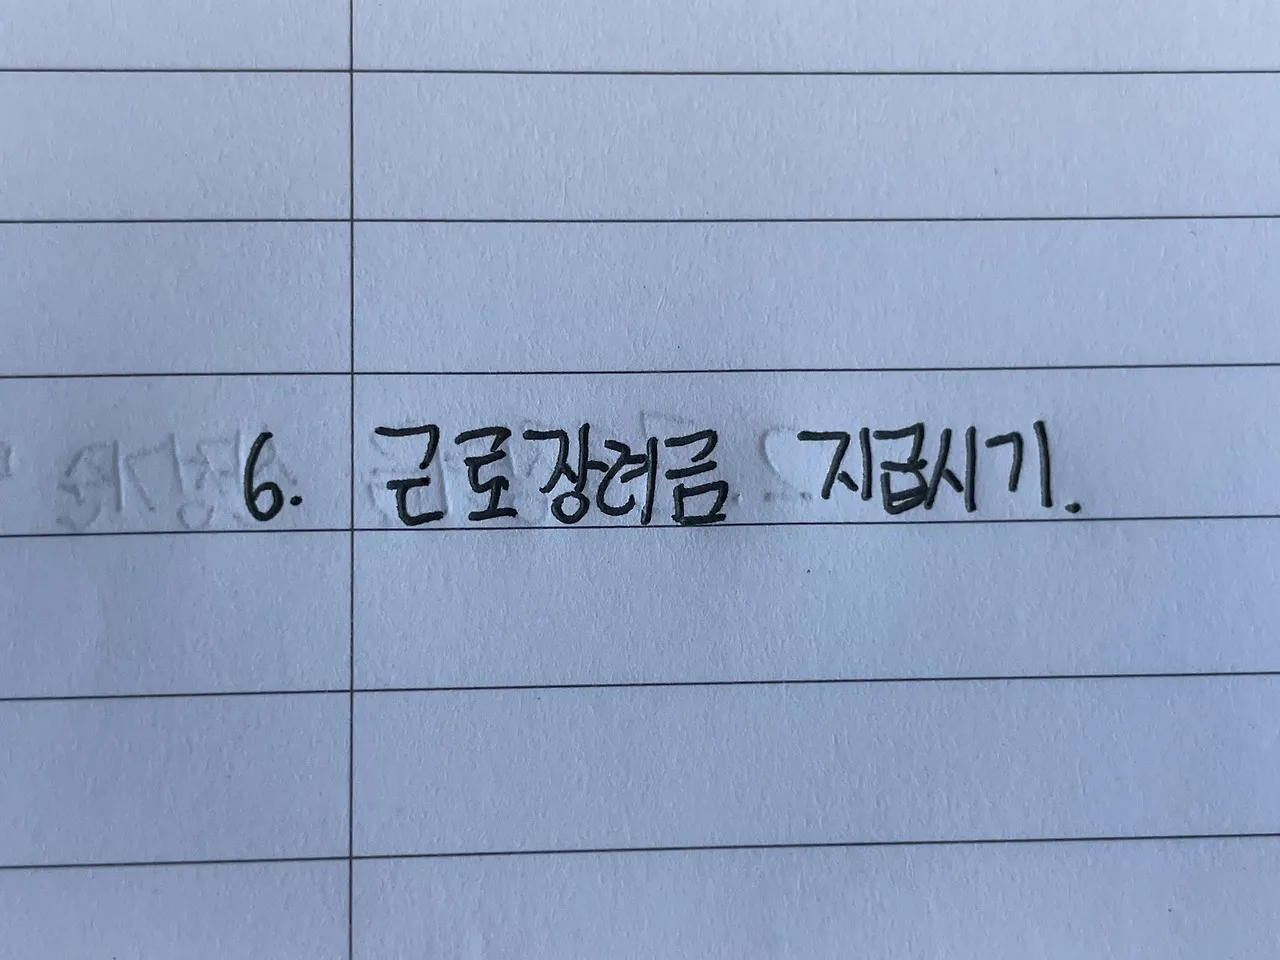 6. 근로장려금 지급시기.